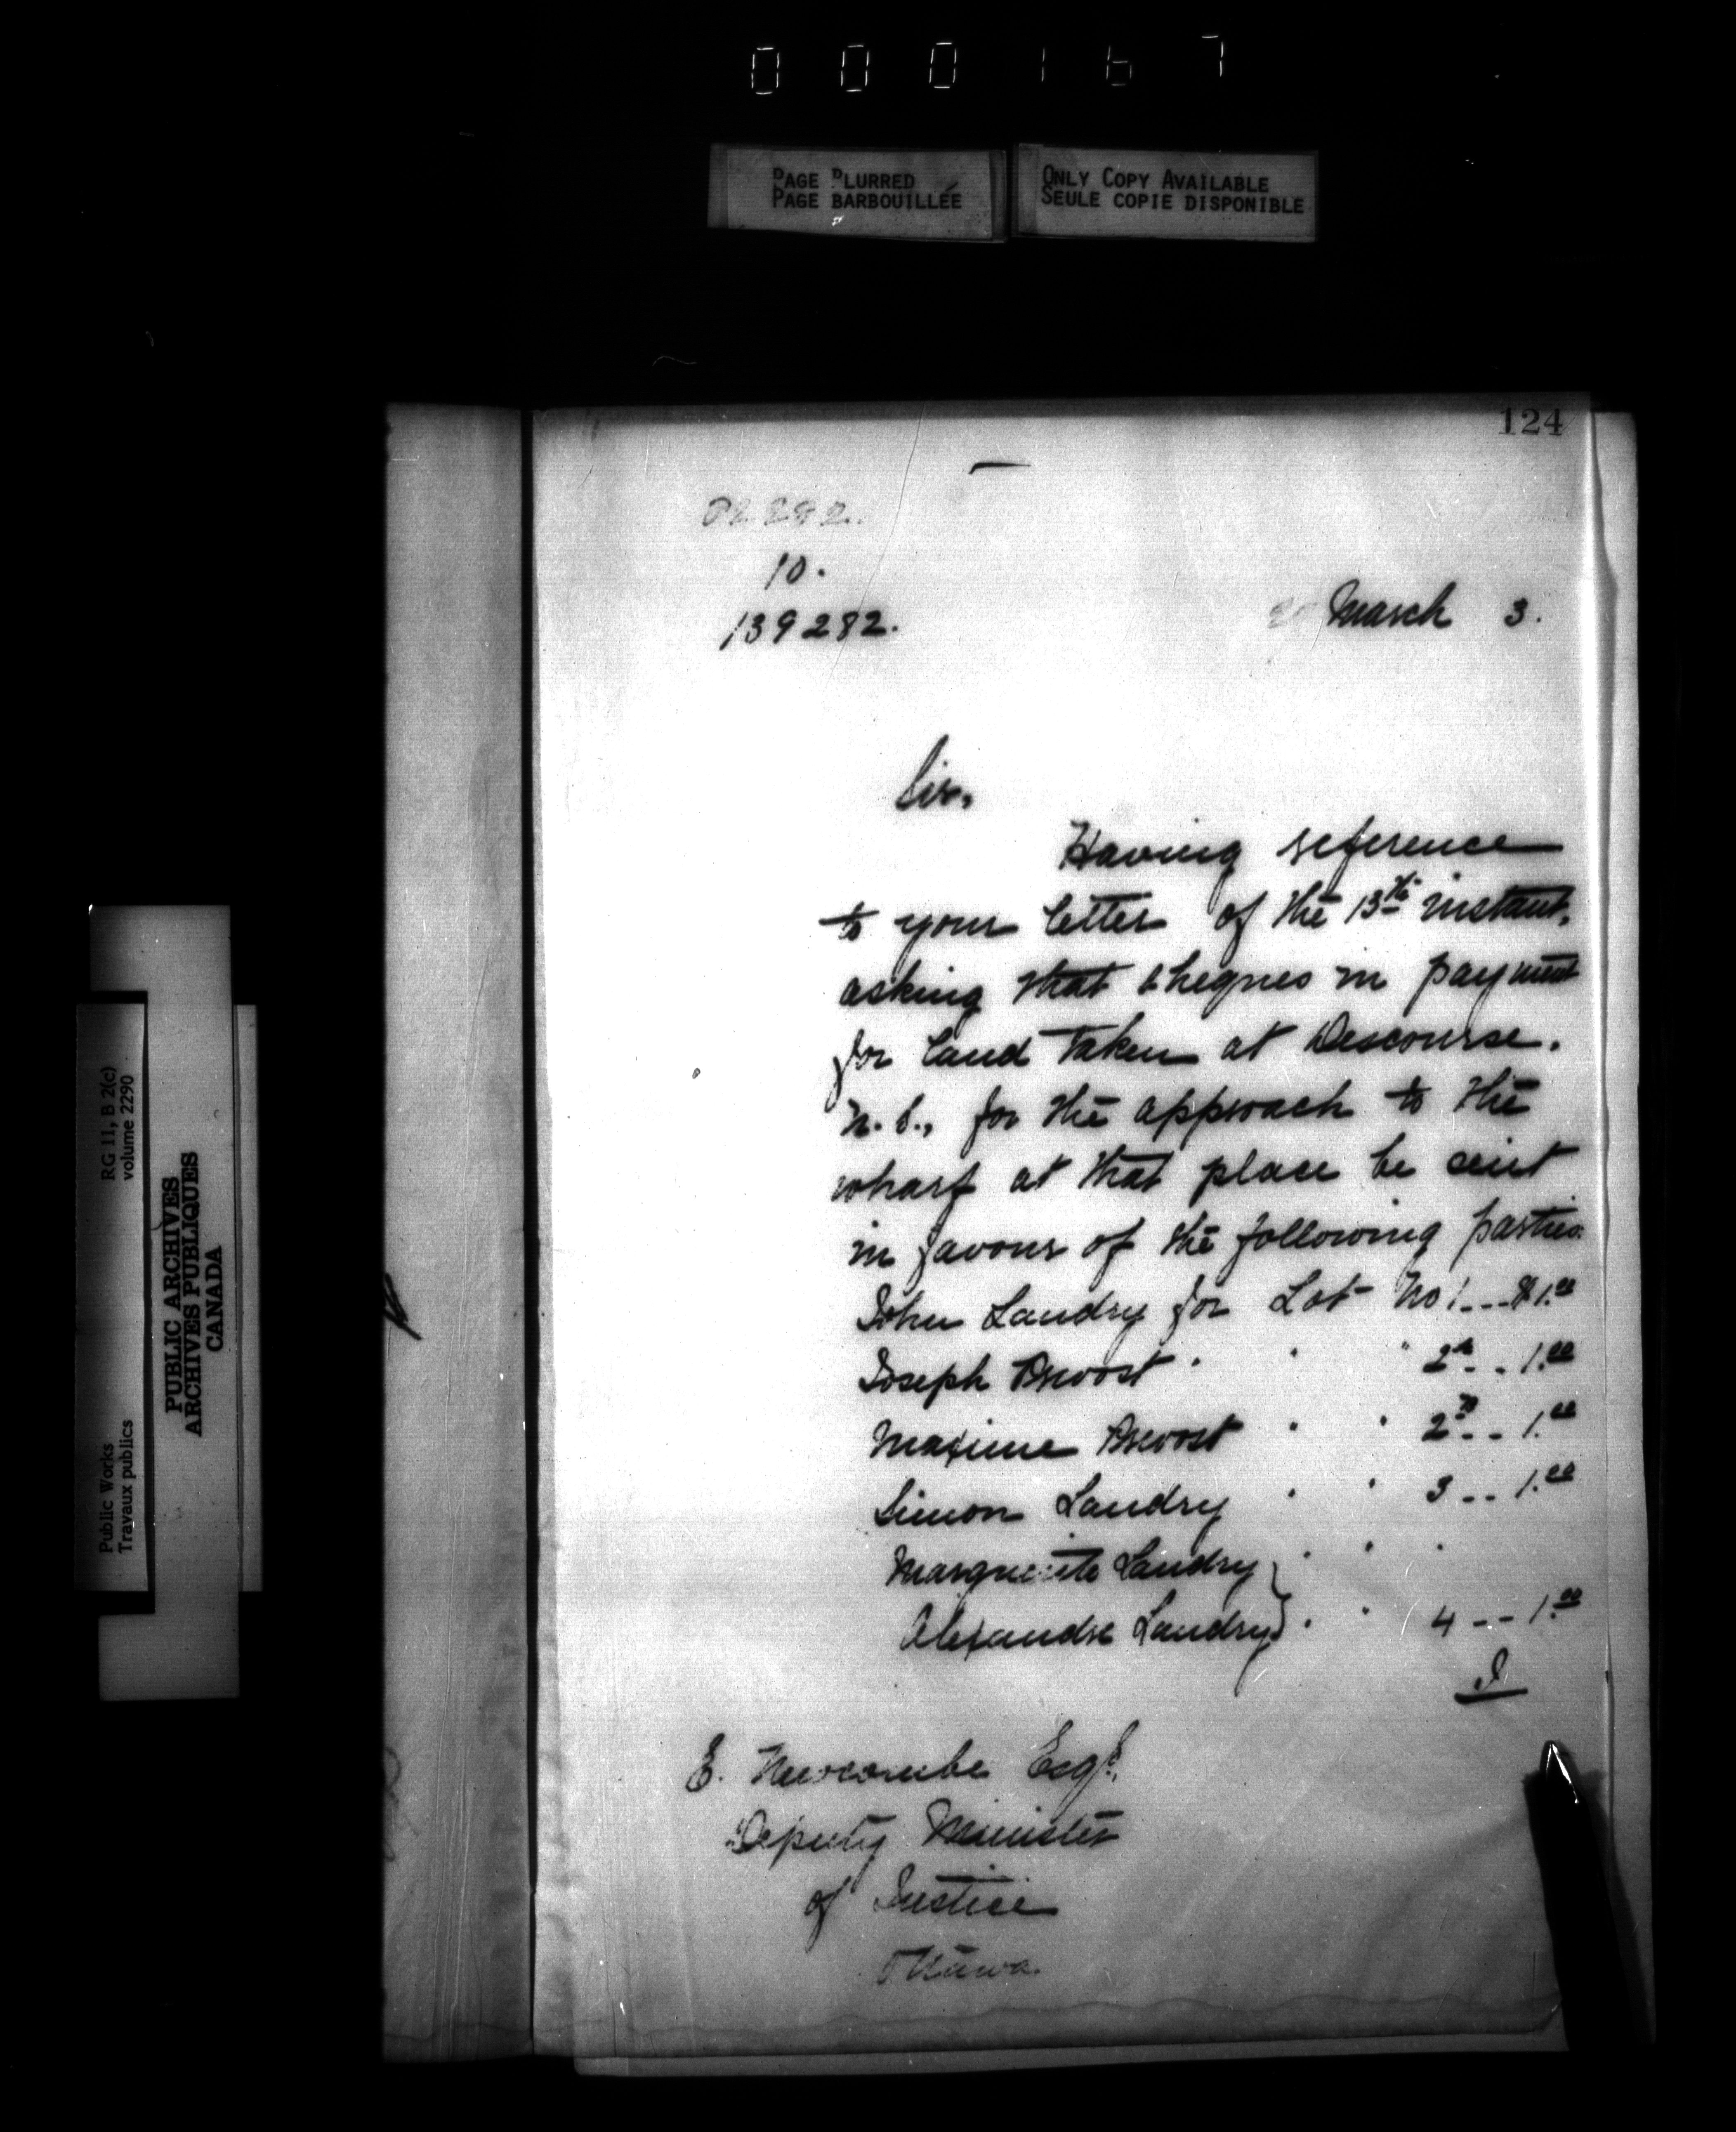 000167
PAGE BLURRED
PAGE BARBOUILLÉE
ONLY COPY AVAILABLE
SEULE COPIE DISPONIBLE
RG 11, B 2(c)
volume 2290
PUBLIC ARCHIVES
ARCHIVES PUBLIQUES
CANADA
Public Works
Travaux publics
124
10.
139282.
March 3.
Sir,
Having reference
to your letter of the 13th instant,
asking that cheques in payment
for land taken at Descourse.
N.S., for the approach to the
wharf at that place be sent
in favour of the following parties.
John Landry for Lot No 1 --- $1.00
Joseph Prevost " " " 2A -- 1.00
Maxime Prevost " " 2B -- 1.00
Simon Landry " " 3 -- 1.00
Marguerite Landry } " " "
Alexandre Landry } " " 4 -- 1.00
I
E. Newcombe Esqr.
Deputy Minister
of Justice
Ottawa.